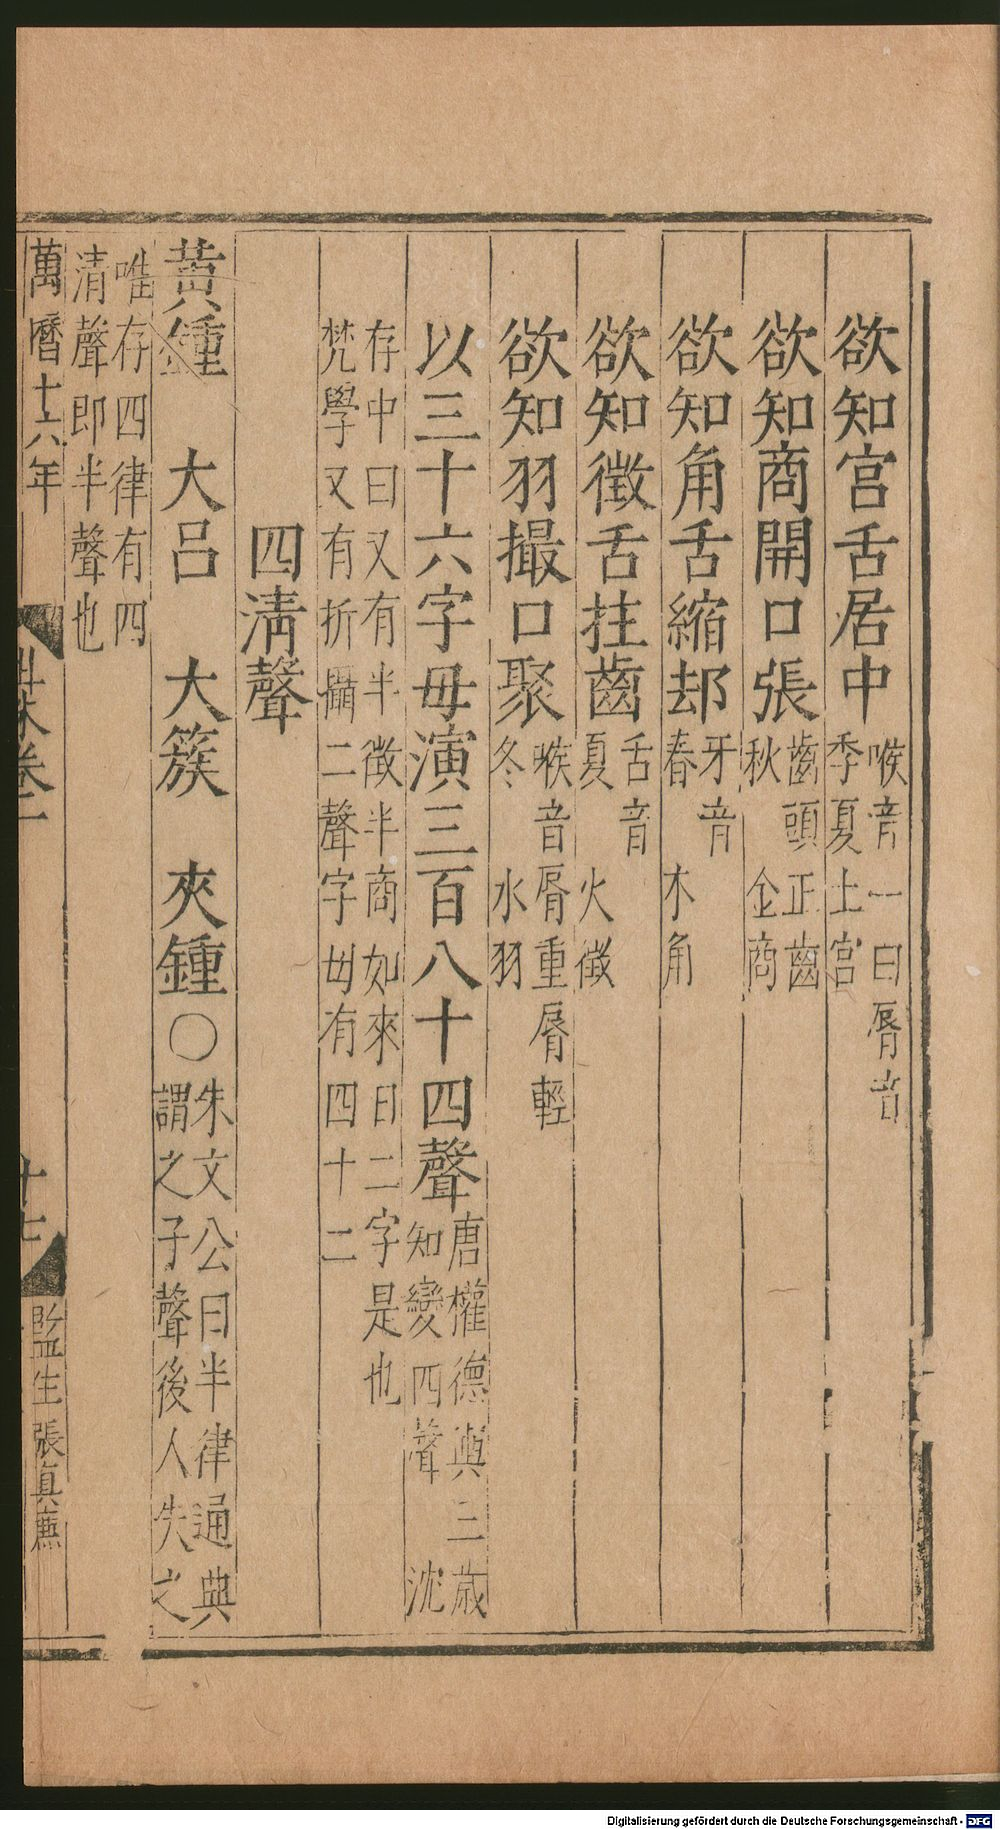 欲知宮舌居中喉音一曰脣音季夏土宮
欲知商開口張齒頭正齒秋金商
欲知角舌縮却牙音春木角
欲知徵舌拄齒舌音夏火徵
欲知羽撮口聚喉音脣重脣輕冬水羽
以三十六字母演三百八十四聲唐權德輿三歲知變四聲沈
存中曰又有半徵半商如來日二字是也梵學又有折攝二聲字毋有四十二
四淸聲
黃鍾 大呂 大簇 夾鍾○朱文公曰半律通典謂之子聲後人失之
唯存四律有四清聲即半聲也
萬曆十六年 卷一 十七 監生張眞
Digitalisierung gefördert durch die Deutsche Forschungsgemeinschaft - DFG